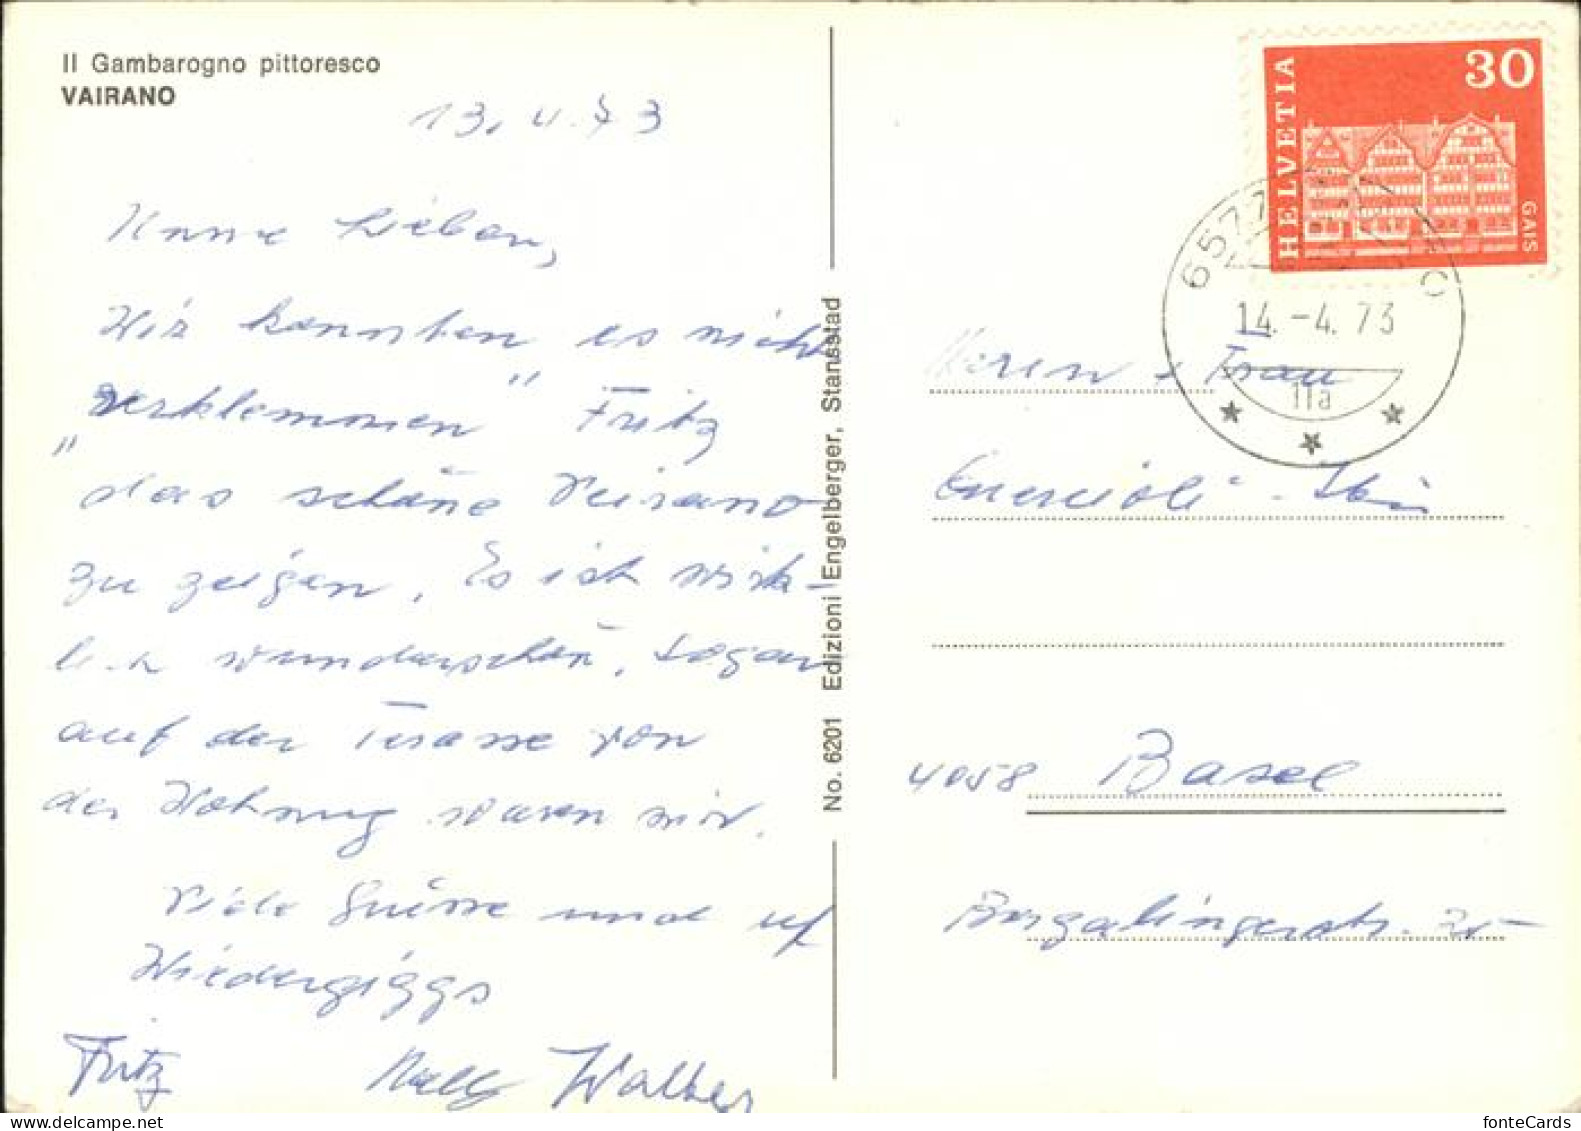 Il Gambarogno pittoresco
VAIRANO
13.4.73
Meine Lieben,
Wir konnten es nicht
"verklemmen" Fritz
das schöne Vairano
zu zeigen. Es ist wirk-
lich wunderschön. Sogar
auf der Terasse von
der Wohnung waren wir.
Viele Grüsse und uf
Wiedergüggs
Fritz Nelly Walter
No. 6201 Edizioni Engelberger, Stansstad
HELVETIA
30
GAIS
6577
14.-4.73
11a
Herrn + Frau
4058 Basel
fonteCards